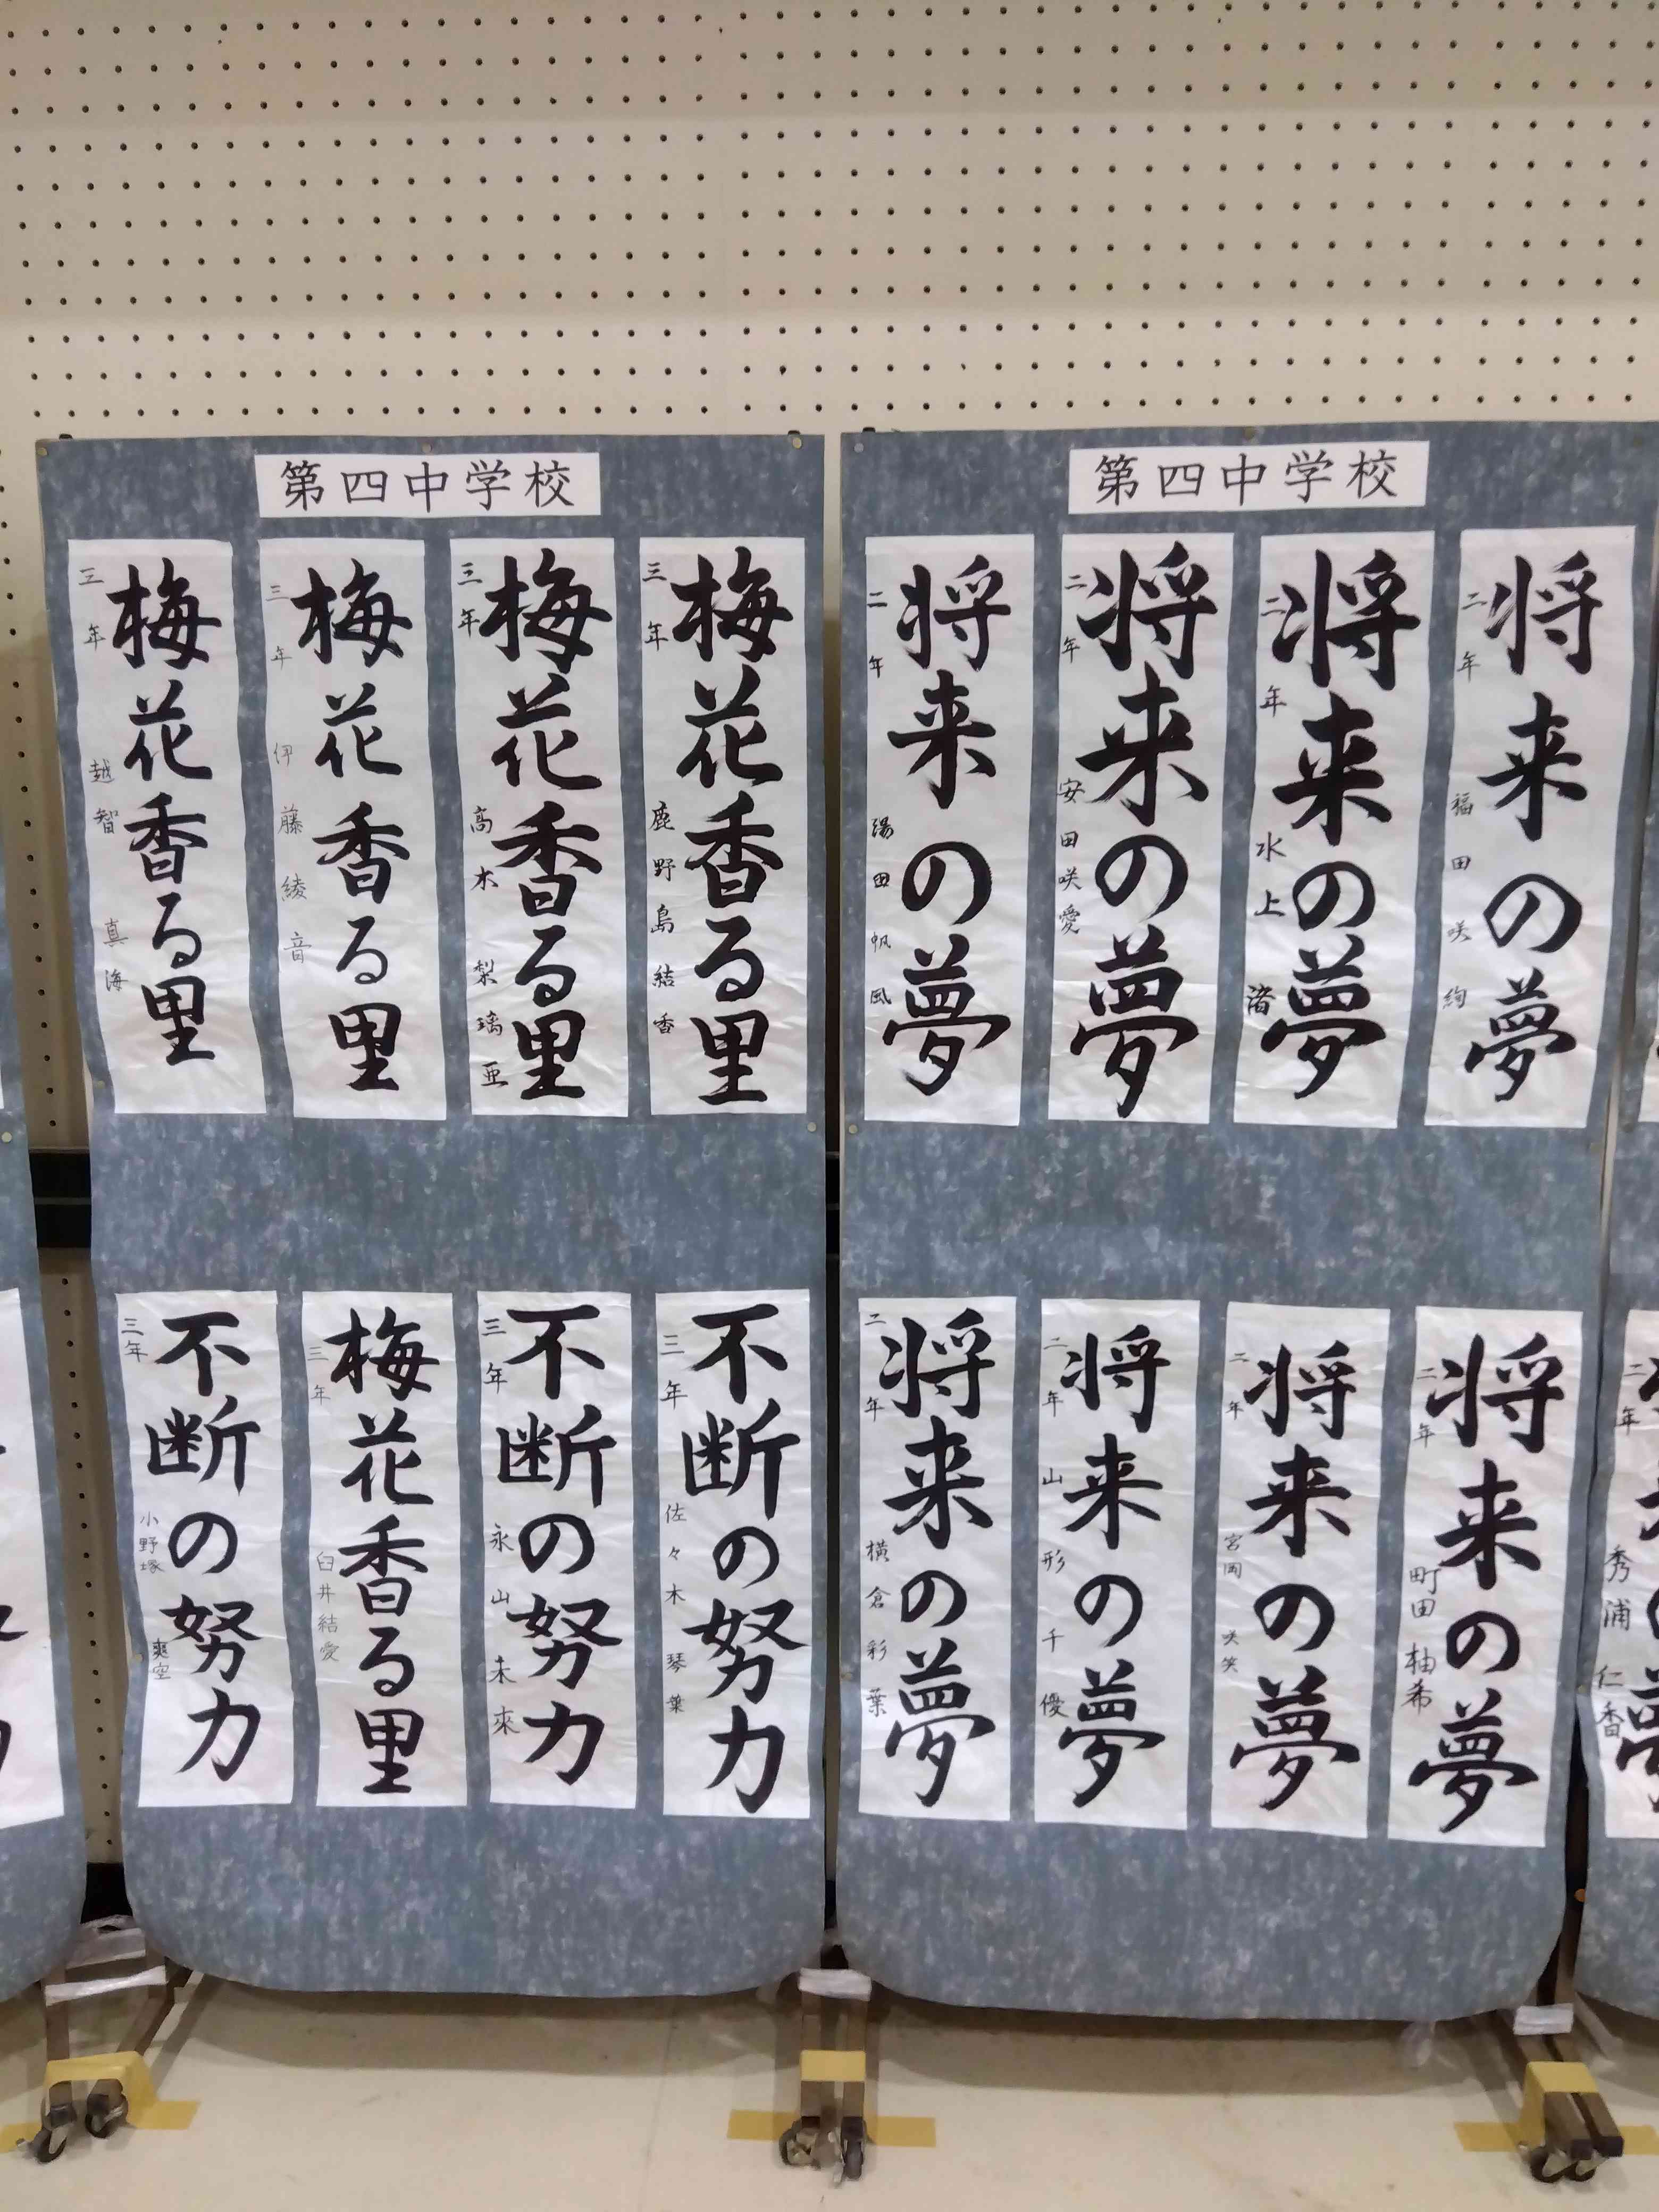 第四中学校
梅花香る里
三年 鹿野島結香
梅花香る里
三年 高木梨璃亜
梅花香る里
三年 伊藤綾音
梅花香る里
三年 越智真海
不断の努力
三年 佐々木琴葉
不断の努力
三年 永山未來
梅花香る里
三年 臼井結愛
不断の努力
三年 小野塚爽空
第四中学校
将来の夢
二年 福田咲絢
将来の夢
二年 水上渚
将来の夢
二年 安田咲愛
将来の夢
二年 湯田帆風
将来の夢
二年 町田柚希
将来の夢
二年 宮岡咲笑
将来の夢
二年 山形千優
将来の夢
二年 横倉彩葉
二年 秀浦仁香